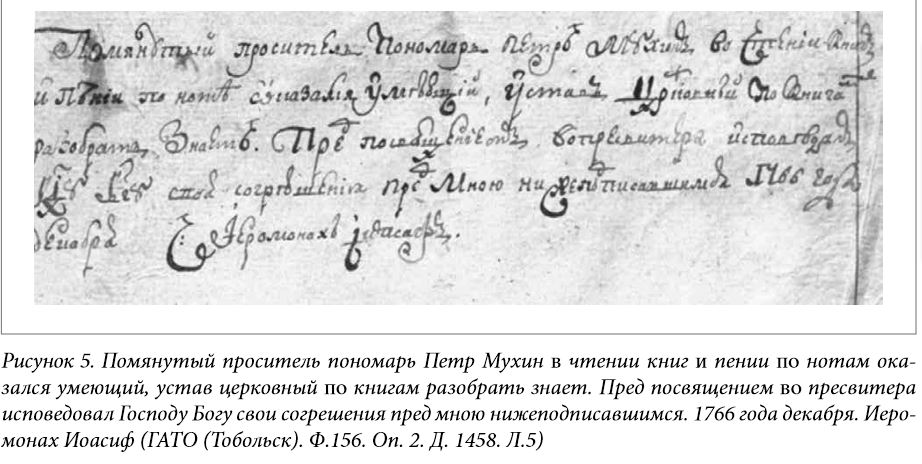 Помянꙋтый проситель Пономарь Петръ Мꙋхинъ во Чтенїи Книгъ
и пѣнїи по нотѣ ѡказался Умѣющїй, Уставъ Црковный По Книгамъ
разобрать Знаетъ. Пред посвященїемъ во пресвитера исповѣдалъ
Гдꙋ Бгꙋ своя согрѣшенїя пред Мною нижеподписавшимсѧ 1766 года
декабря Іеромонахъ Іоасафъ.
Рисунок 5. Помянутый проситель пономарь Петр Мухин в чтении книг и пении по нотам ока-
зался умеющий, устав церковный по книгам разобрать знает. Пред посвящением во пресвитера
исповедовал Господу Богу свои согрешения пред мною нижеподписавшимся. 1766 года декабря. Иеро-
монах Иоасиф (ГАТО (Тобольск). Ф.156. Оп. 2. Д. 1458. Л.5)